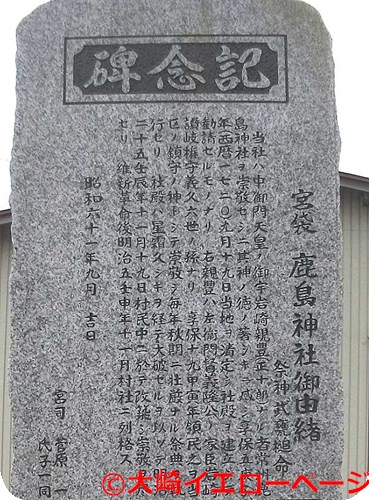 記念碑
宮袋 鹿島神社御由緒
祭神 武甕槌命
当社ハ中御門天皇ノ御宇岩崎親豊正十郎ナル者常州鹿
島神社ヲ崇敬セシニ其神ノ徳ノ著シキニ感シ享保五庚子
年西暦一七二〇九月十九日当地ヲ清定シ社殿ヲ建立シ
勧請セルモノナリ 右親豊ハ左衛門督義隆公ノ家臣岩崎
讃岐権守義久六世ノ孫ナリ 享保十九甲寅年領民之ヲ当
区ノ鎮守ノ神トシテ崇敬シ毎年秋期ニ壮厳ナル祭典ヲ
行セリ 社殿ハ星霜久シキヲ経テ大破セルヲ以テ明治
二十五壬辰年十一月十九日村民中ニ於テ改築シ崇敬
セリ 維新革命後明治五壬申年十一月村社ニ列格ス
昭和六十一年九月 吉日
宮司 菅原 一
氏子一同
©大崎イエローページ